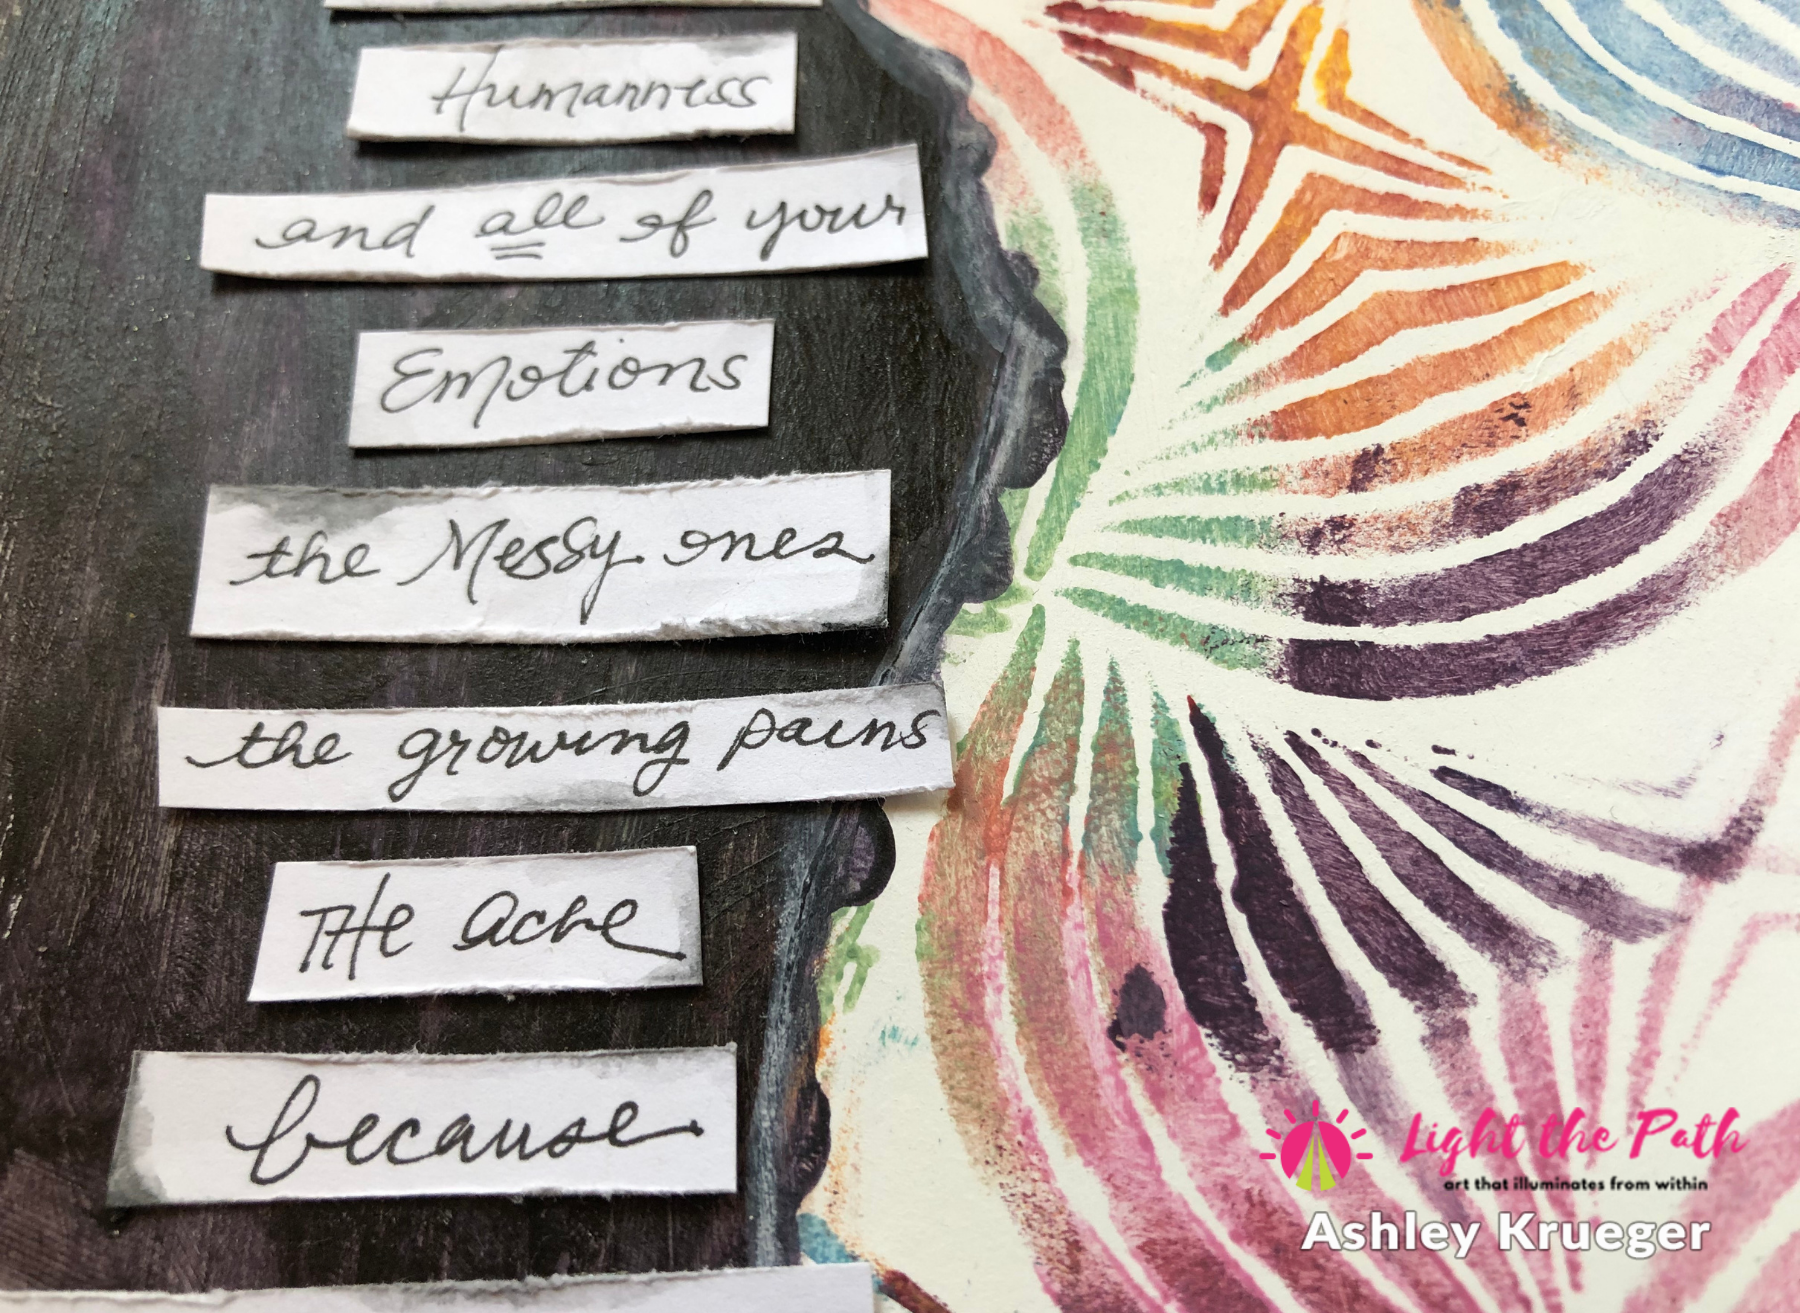 Humanness
and all of your
Emotions
the Messy ones
the growing pains
THe Ache
because
Light the Path
art that illuminates from within
Ashley Krueger